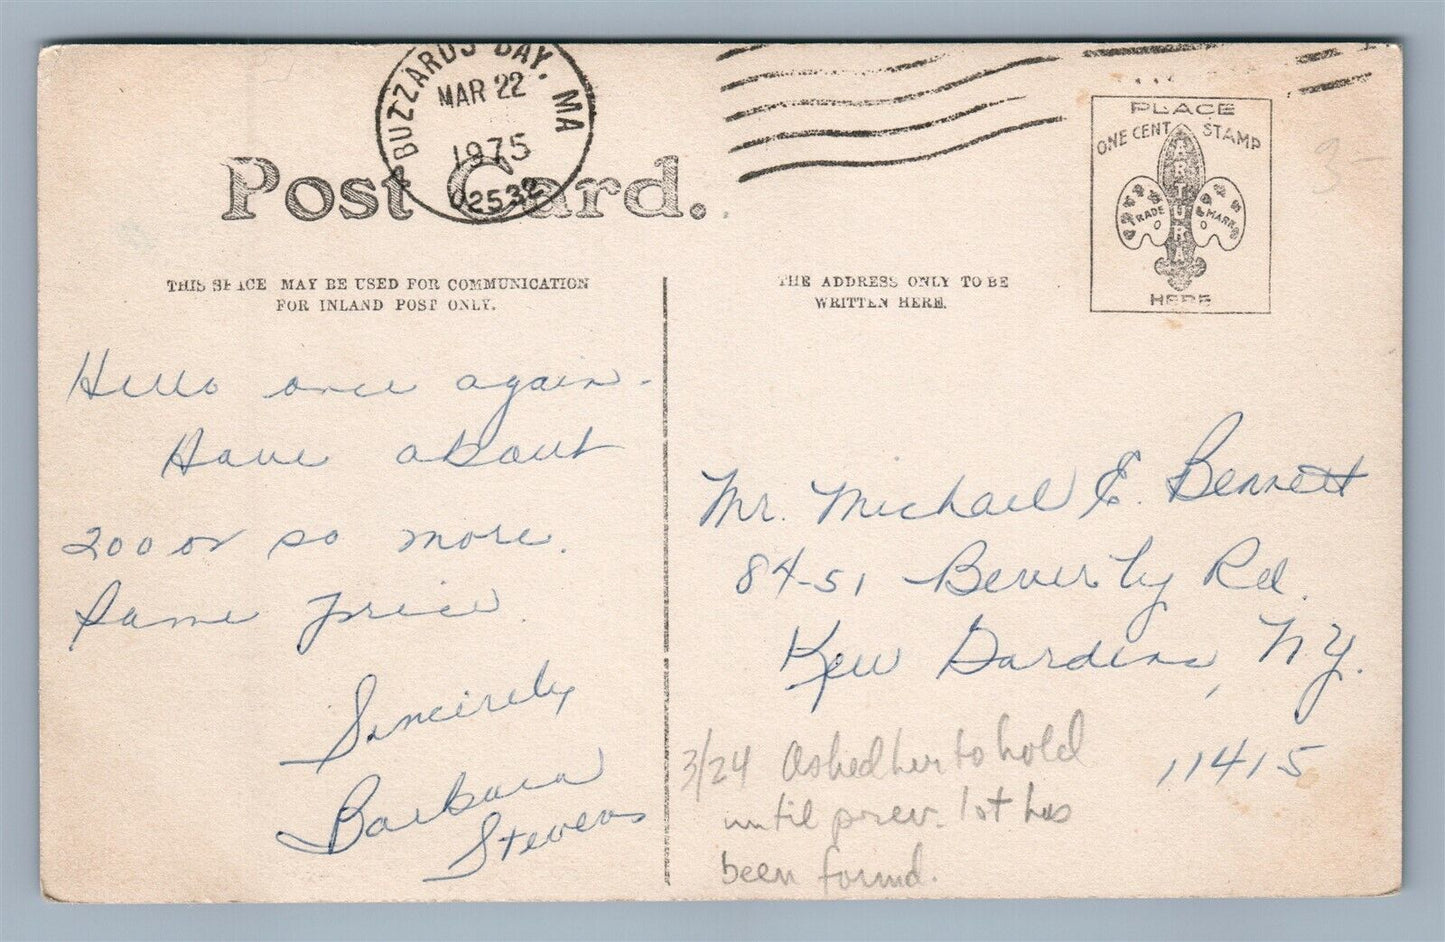 BUZZARDS BAY, MA
MAR 22
1975
02532
Post Card.
PLACE
ONE CENT STAMP
ARTURA
TRADE MARK
HERE
3-
THIS SPACE MAY BE USED FOR COMMUNICATION
FOR INLAND POST ONLY.
THE ADDRESS ONLY TO BE
WRITTEN HERE.
Hello once again -
Have about
200 or so more.
Same price.
Sincerely
Barbara
Stevens
Mr. Michael E. Bennett
84-51 Beverly Rd.
Kew Gardens, N.Y.
11415
3/24 Asked her to hold
until prev. lot has
been found.